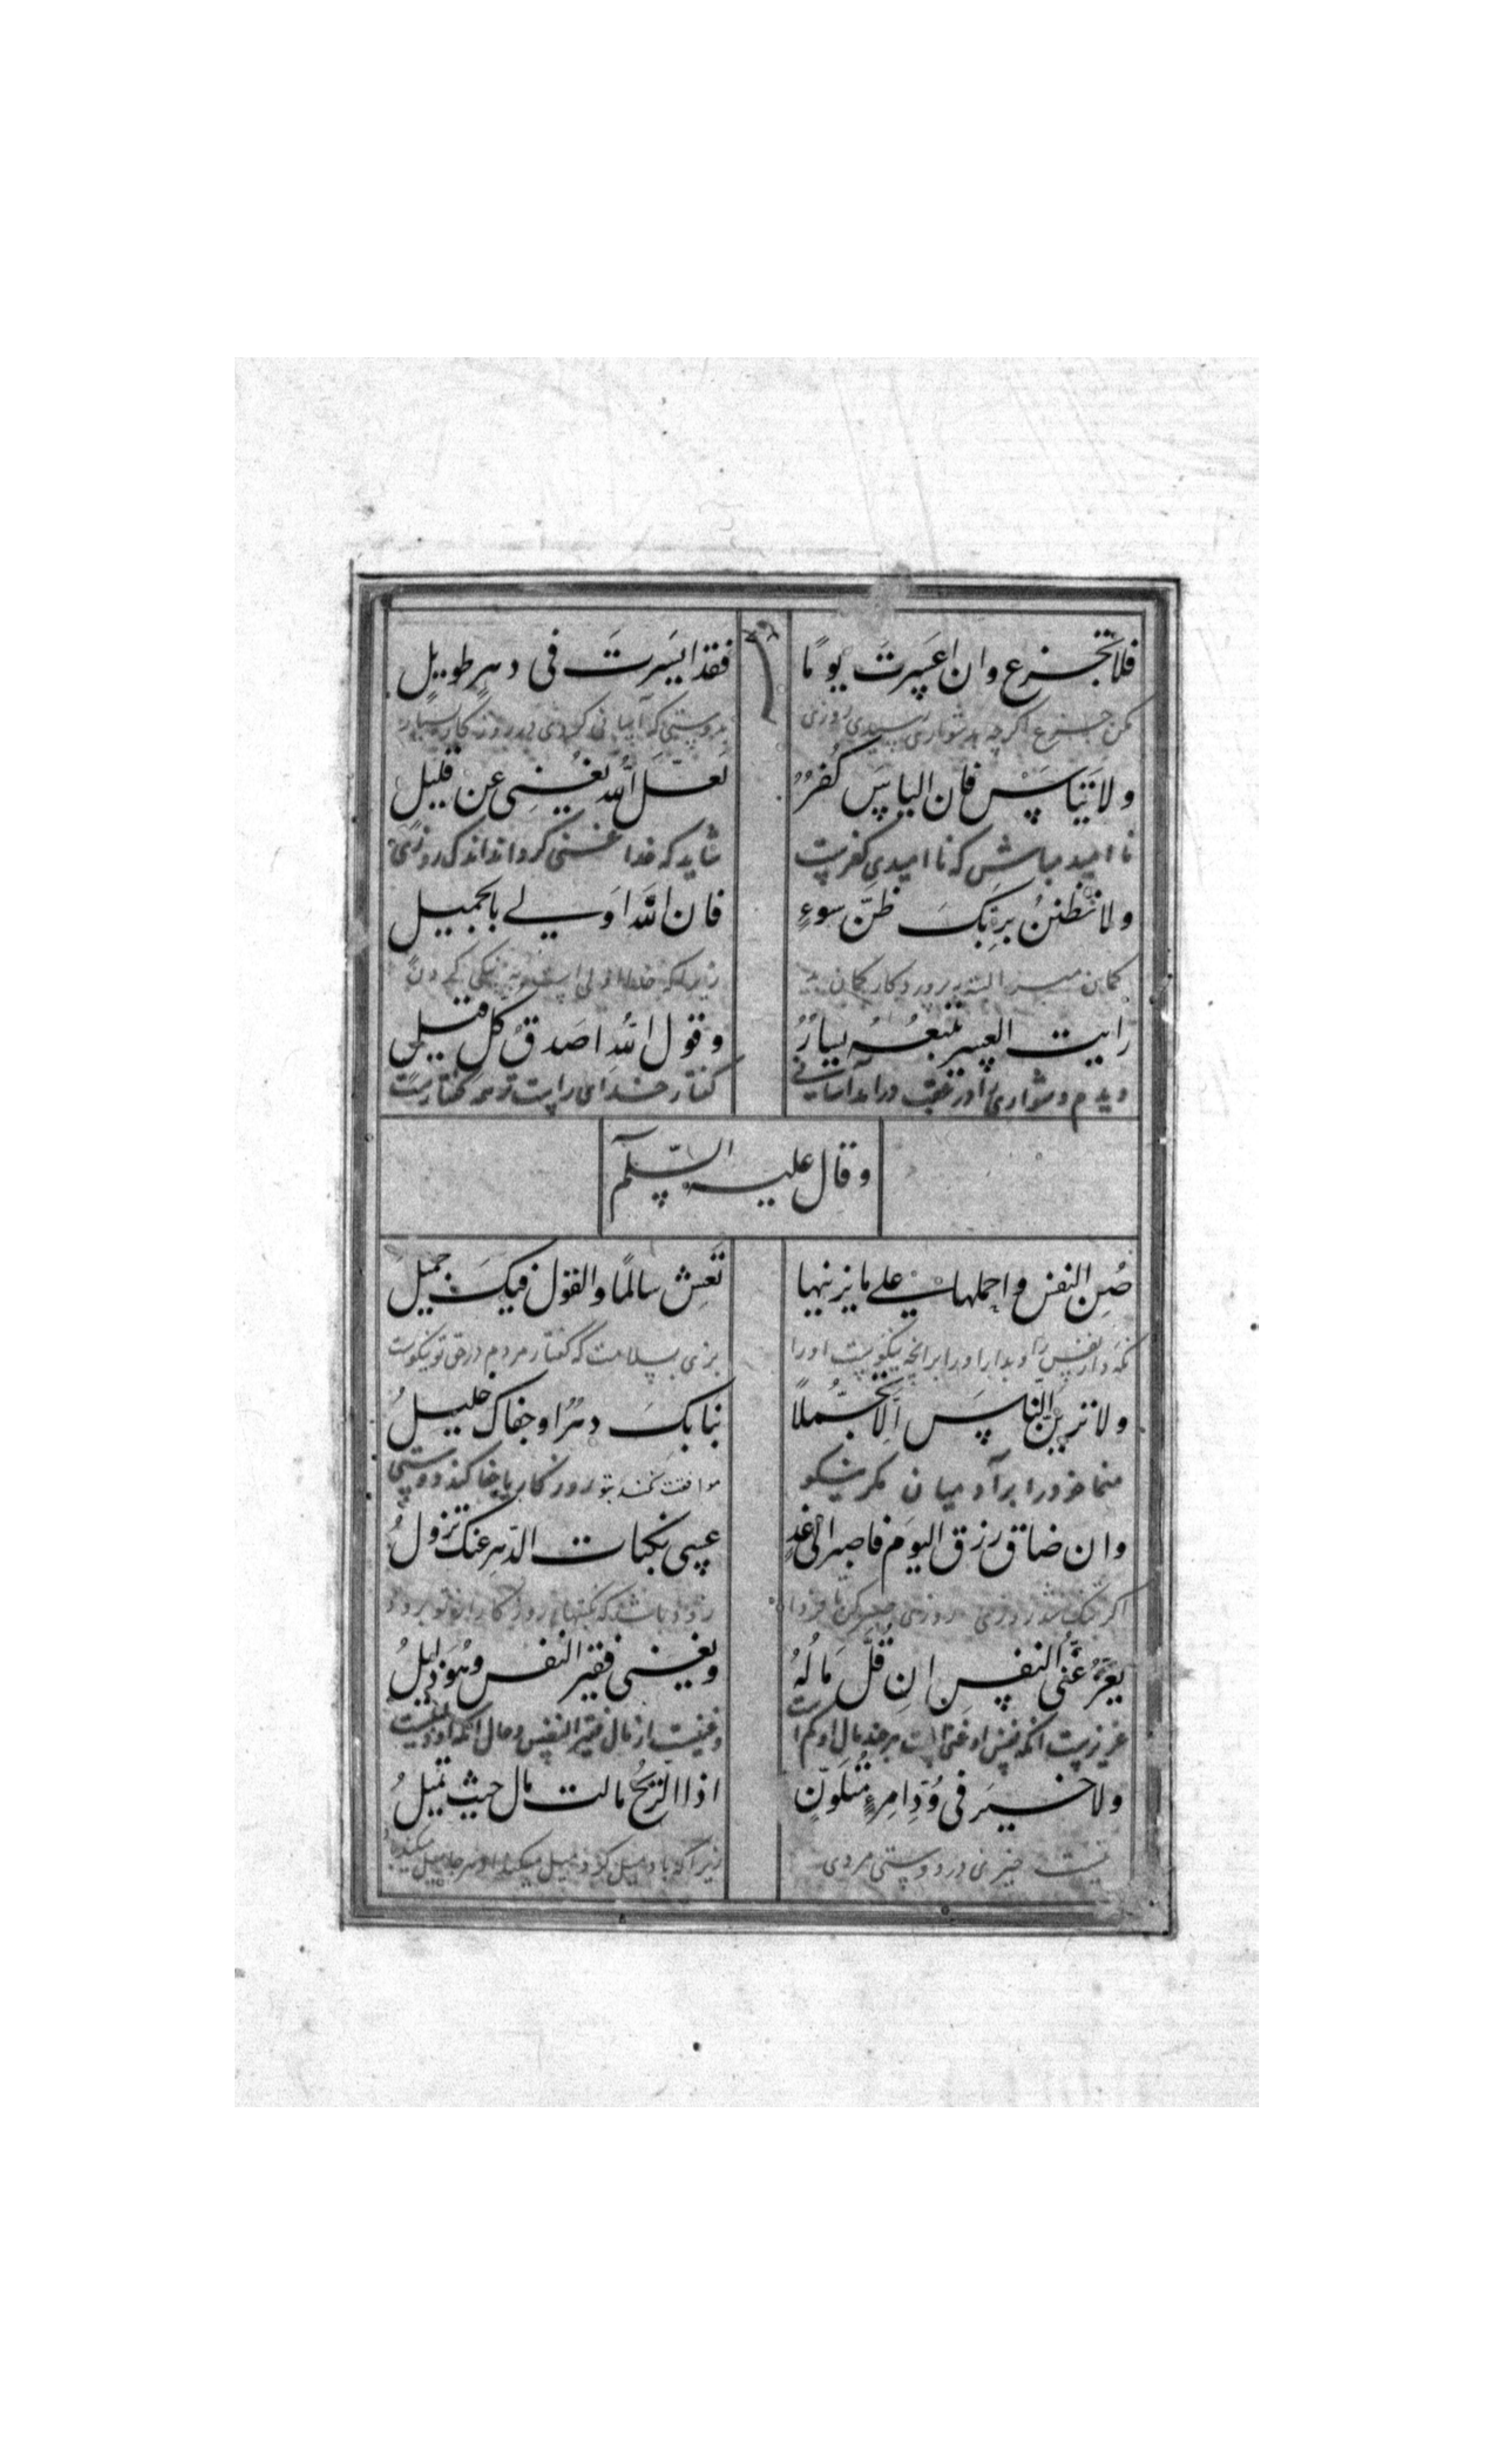 فلا تجزع وان اعسرت یومًا فقد ایسرت فی دهر طویل
مکن جزع اگرچه بدشواری رسیدی روزی بدرستی که آسانی کردی در روزگار بسیار
ولا تیاس فان الیاس کفرٌ لعل الله یغنی عن قلیل
نا امید مباش که نا امیدی کفرست شاید که خدا غنی گرداند اندک روزی
ولا تظنن بربک ظن سوءٍ فان الله اولی بالجمیل
گمان مبر البته بپروردگار گمان بد زیرا که خدا اولی است به نیکی کردن
رایت العسر تتبعه یسارٌ وقول الله اصدق کل قیل
دیدم دشواری را در عقب درآمد آسانی گفتار خدای راست تر هر گفتارست
وقال علیه السلم
صُنِ النفس واحملها علی ما یزینها تعش سالمًا والقول فیک جمیل
نگه دار نفس را و بدار او را بر آنچه نیکوست او را بزی بسلامت که گفتار مردم در حق تو نیکوست
ولا ترین الناس الا تجملاً نبا بک دهرٌ او جفاک خلیل
منما خود را بر آدمیان مگر نیکو موافقت نکند بتو روزگار یا جفا کند دوستی
وان ضاق رزق الیوم فاصبر الی غدٍ عسی نکبات الدهر عنک تزول
اگر تنک شد روزی روزی صبر کن تا فردا زود باشد که نکبتهای روزگار از تو برود
یعز غنی النفس ان قل مالهُ ویغنی فقیر النفس وهو ذلیل
عزیزست آنکه نفس او غنی است هر چند مال او کم است و غنیست از مال فقیر النفس و حال آنکه او
ولا خیر فی ود امرءٍ متلونٍ اذا الریح مالت مال حیث تمیل
نیست خیری در دوستی مردی زیرا که باد میل کرد میل میکند